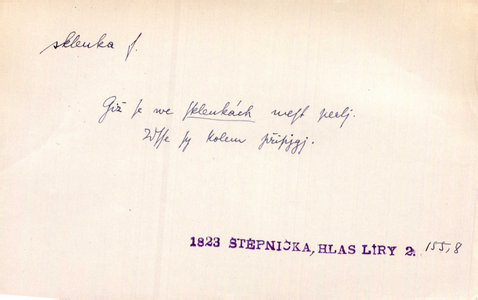 sklenka f.
Giž se we sklenkách mest perlj.
Wsse sy kolem připjgj.
1823 ŠTĚPNIČKA, HLAS LÍRY 2. 155,8